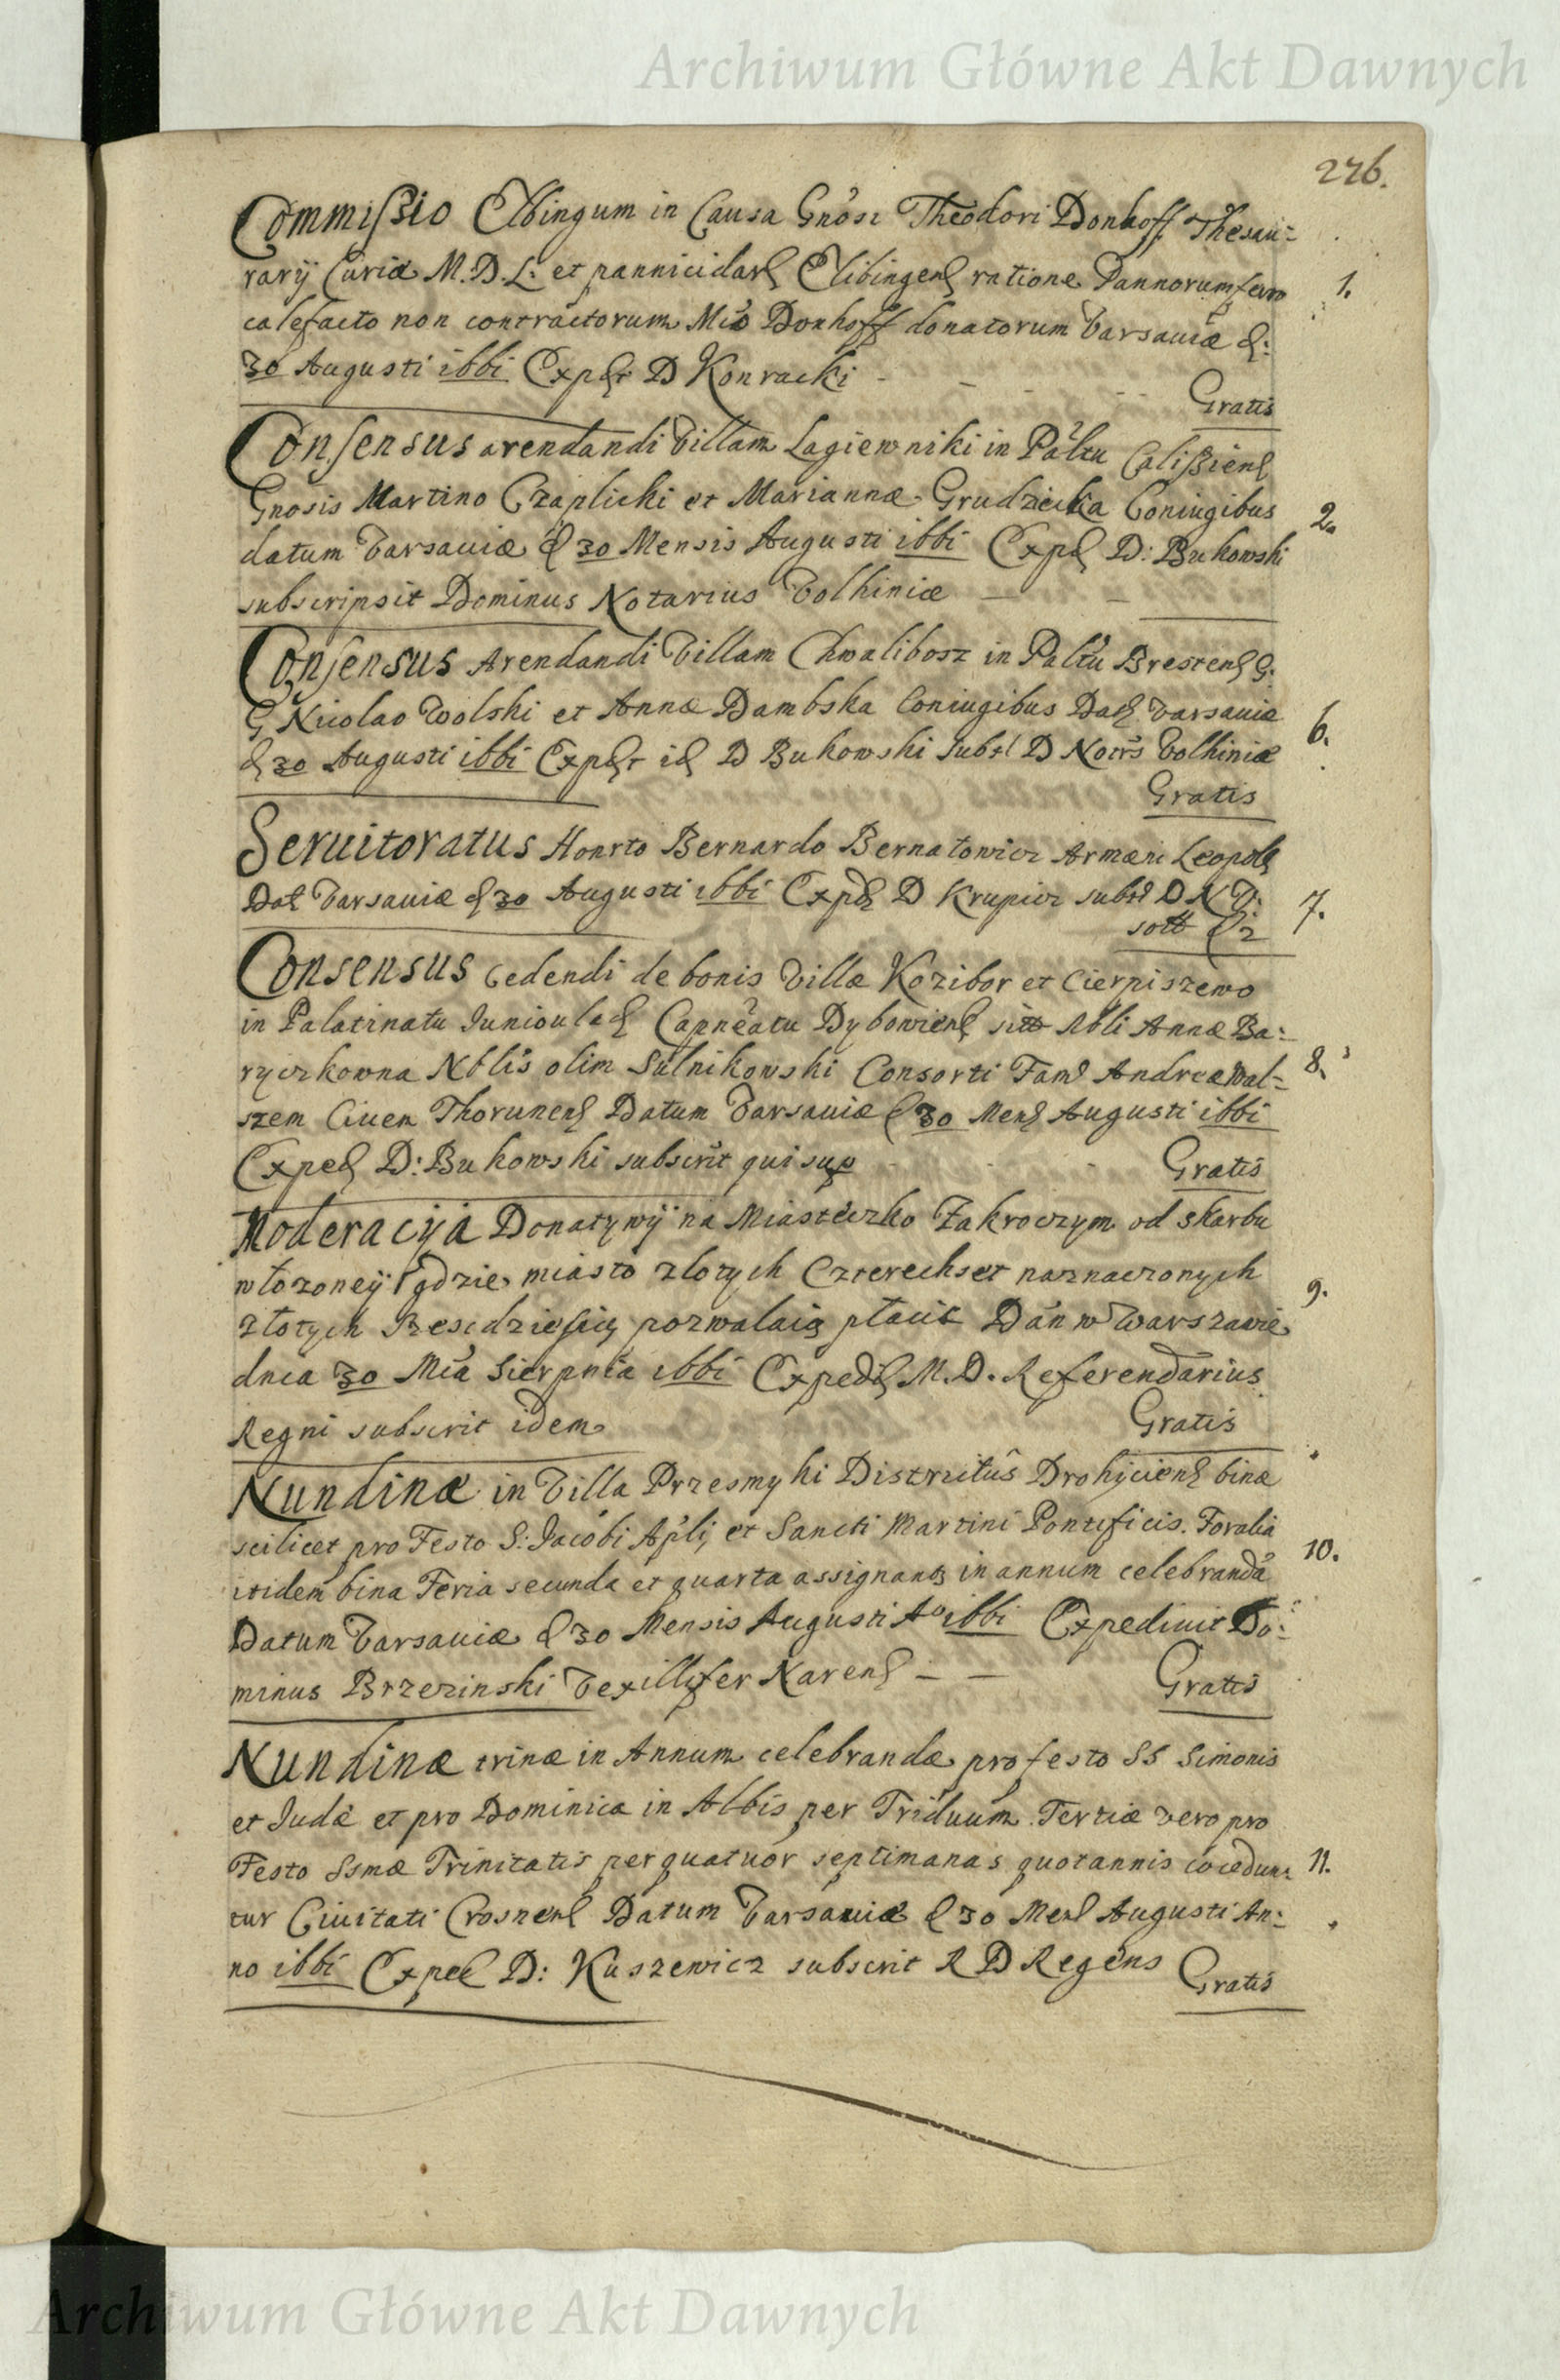 Archiwum Główne Akt Dawnych
226.
Commissio Elbingum in Causa Gnosi Theodori Donhoff Thesau:
rarij Curiæ M. D. L: et pannicidar Elibingen ratione Pannorum ferro
calefacto non contractorum Mco Donhoff donatorum Varsaviæ d:
1.
30 Augusti ibbi Expdt D Konracki
Gratis
Consensus arendandi Villam Lagiewniki in Paltu Calissien
Gnosis Martino Czaplicki et Mariannæ Grudzicka Coniugibus
2.
datum Varsaviæ d 30 Mensis Augusti ibbi Expd D: Bukowski
subscripsit Dominus Notarius Volhiniæ
Consensus Arendandi Villam Chwalibosz in Paltu Bresten G.
G Nicolao Wolski et Annæ Dambska Coniugibus Dat Varsaviæ
6.
d 30 Augusti ibbi Expdt id D Bukowski Subst D Notrs Volhiniæ
Gratis
Servitoratus Honrto Bernardo Bernatowicz Armæni Leopol
Dat Varsaviæ d 30 Augusti ibbi Expd D Krupicz subst D N D:
7.
Consensus cedendi de bonis Villæ Kozibor et Cierpiszewo
in Palatinatu Junioulad Capneatu Dybowien sitt Nbli Annæ Ba:
ryczkowna Nblis olim Sulnikowski Consorti Fam Andreæ Wal=
8.
szem Civem Thorunen Datum Varsaviæ d 30 Men Augusti ibbi
Exped D: Bukowski subscrit qui sup
Gratis
Moderacyja Donatywij na Miasteczko Zakroczym od skarbu
włozoneij gdzie miasto zlotych Czterechset naznaczonych
9.
złotych Szescdziesiąt pozwalaią płacic Dan w Warszawie
dnia 30 Mca Sierpnia ibbi Exped M. D. Referendarius
Regni subscrit idem
Gratis
Nundinæ in Villa Przesmyki Districtûs Drohicien binæ
scilicet pro Festo S: Jacobi Apli, et Sancti Martini Pontificis. Foralia
10.
itidem bina Feria secunda et quarta assignant in annum celebranda
Datum Varsaviæ d 30 Mensis Augusti Ao ibbi Expedivit Do:
minus Brzezinski Vexillifer Naren
Gratis
Nundinæ trinæ in Annum celebrandæ pro festo SS Simonis
et Judæ et pro Dominica in Albis per Triduum Tertiæ vero pro
Festo Ssmæ Trinitatis per quatuor septimanas quotannis cocedun:
11.
tur Civitati Crosnen Datum Varsaviæ d 30 Men Augusti An:
no ibbi Exped D: Kuszewicz subscrit R D Regens
Gratis
Archiwum Główne Akt Dawnych